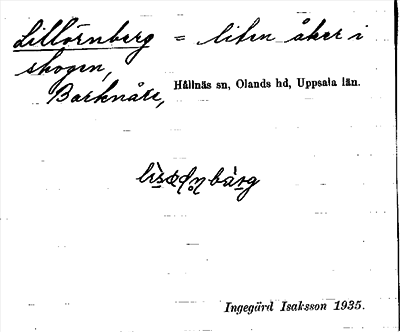 Lillörnberg = liten åker i
skogen,
Barknåre, Hållnäs sn, Olands hd, Uppsala län.
Ingegärd Isaksson 1935.